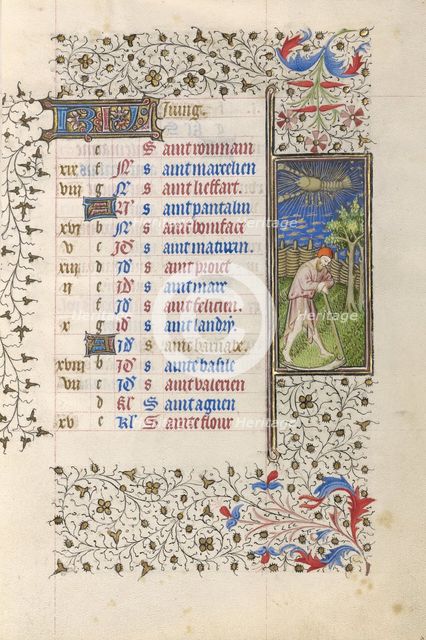 KL Juing.
S aint roumain
xix f N s aint marcelien
viii g N s aint lieffart
A N s aint pantalin
xvi b N s aint boniface
v c Id s aint maturin
xiii d Id s aint proiet
ii e Id s aint marc
f Id s aint felicien
x g id s aint landry
A Id s ainte barnabe
xviii b Id s ainte basile
vii c Id s aint valerien
d KL S aint aguen
xv e KL S ainte flour
heritage
Heritage
Images